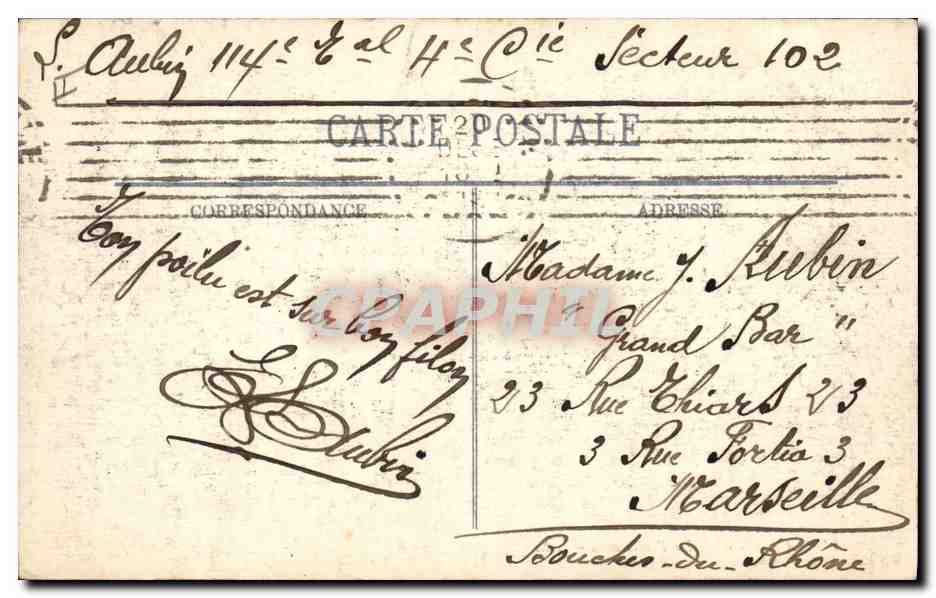 S. Aubin 114e Eal 4e Cie Secteur 102
CARTE POSTALE
CORRESPONDANCE
ADRESSE
Ton poilu est sur bon filon
Aubin
Madame J. Aubin
" Grand Bar "
23 Rue Thiars 23
3 Rue Fortia 3
Marseille
Bouches-du-Rhône
CRAPHIL